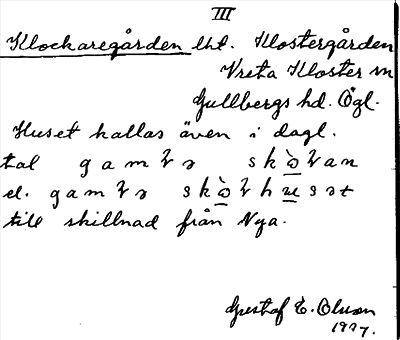 III
Klockaregården lht. Klostergården
Vreta Kloster sn
Gullbergs hd. Ögl.
Huset kallas även i dagl.
tal gamɫə skòɫan
el. gamɫə skòɫhusət
till skillnad från Nya.
Gustaf E. Olsson